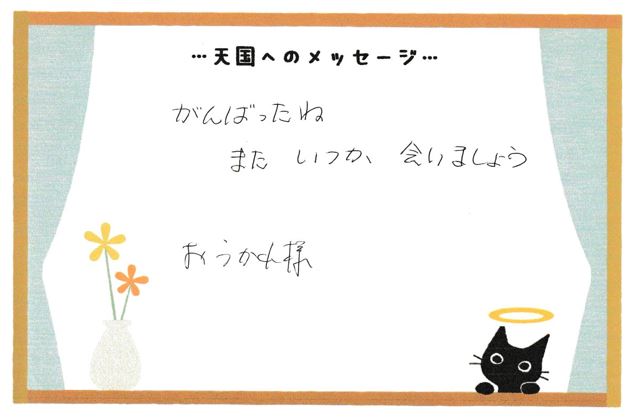 …天国へのメッセージ…
がんばったね
また いつか、会いましょう
おうかん様